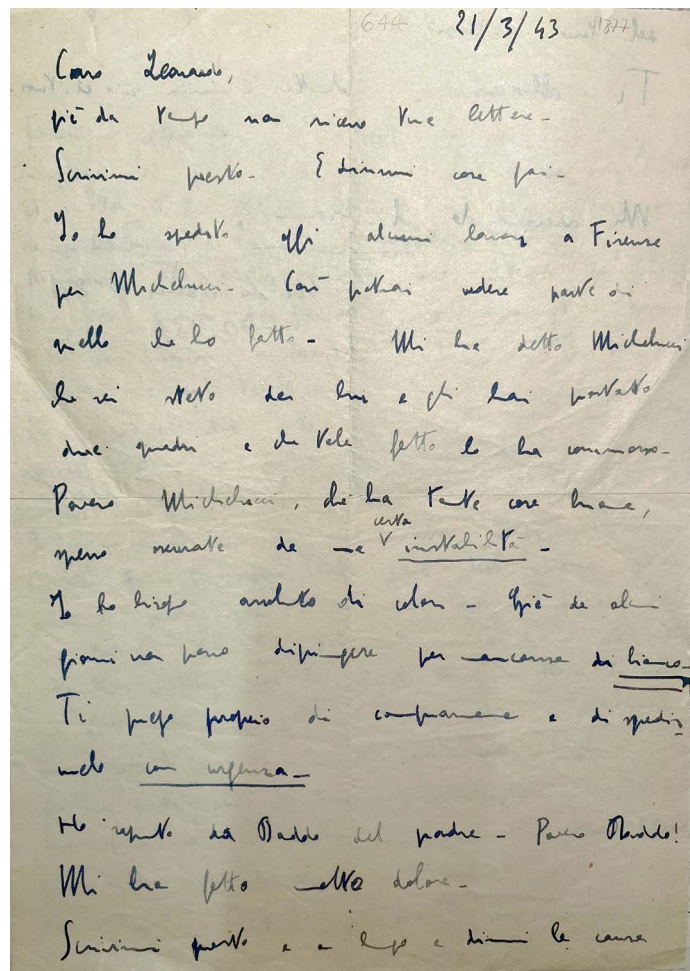 644 21/3/43 1877
Caro Leonardo,
già da tempo non ricevo tue lettere-
Scrivimi presto- E dimmi cosa fai-
Io ho spedito oggi alcuni lavori a Firenze
per Michelucci- Così potrai vedere parte di
quello che ho fatto- Mi ha detto Michelucci
che sei stato da lui e gli hai portato
due quadri e che tale fatto lo ha commosso-
Povero Michelucci, che ha tante cose buone,
spesso oscurate da una certa instabilità-
Io ho bisogno assoluto di colori- Già da alcuni
giorni non posso dipingere per mancanza di bianco-
Ti prego proprio di comprarmene e di spedir
melo con urgenza-
Ho saputo da Baldo del padre- Povero Baldo!
Mi ha fatto molto dolore-
Scrivimi presto e a lungo e dimmi la causa